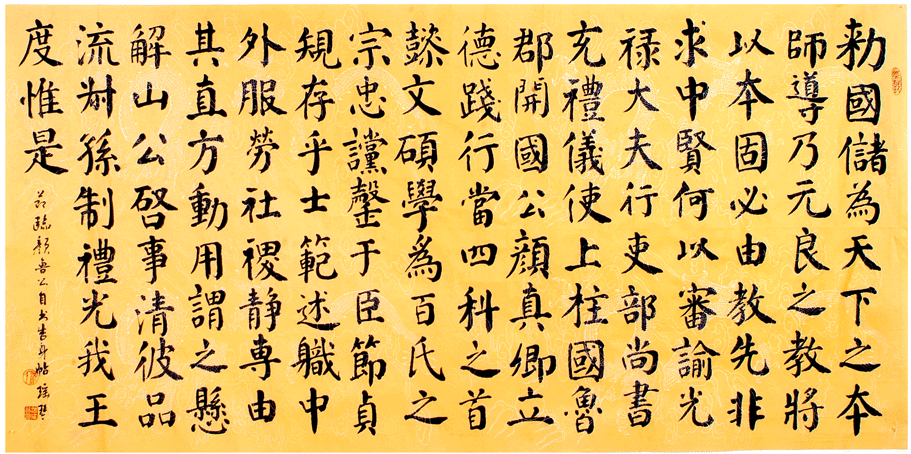 勑國儲為天下之本
師導乃元良之教將
以本固必由教先非
求中賢何以審諭光
禄大夫行吏部尚書
充禮儀使上柱國魯
郡開國公顔真卿立
德踐行當四科之首
懿文碩學為百氏之
宗忠讜罄于臣節貞
規存乎士範述職中
外服勞社稷静專由
其直方動用謂之懸
解山公啓事清彼品
流叔孫制禮光我王
度惟是
節臨顔魯公自書告身帖